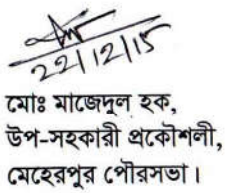 22/12/15
মোঃ মাজেদুল হক,
উপ-সহকারী প্রকৌশলী,
মেহেরপুর পৌরসভা।